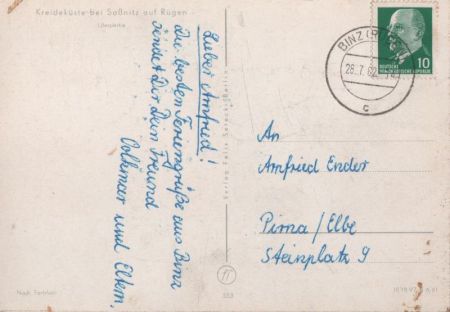 Kreideküste bei Saßnitz auf Rügen
Lieber Arnfried!
Die besten Feriengrüße aus Binz
sendet Dir Dein Freund
Volkmar und Eltern.
Verlag Felix Setecki, Berlin
BINZ (RÜG)
28.7.62
c
10
DEUTSCHE
DEMOKRATISCHE REPUBLIK
An
Arnfried Ender
Pirna/Elbe
Steinplatz 9